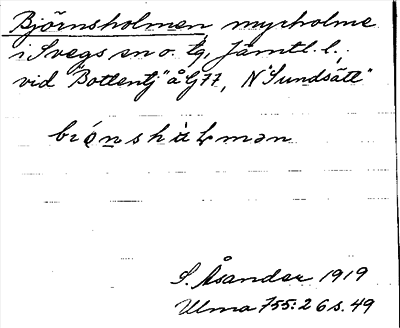 Björnsholmen, myrholme
i Svegs sn o. tg, Jämtl. l.
vid "Bottentj" å G77, N "Sundsätt"
S. Åsander 1919
Ulma 755:26 s. 49